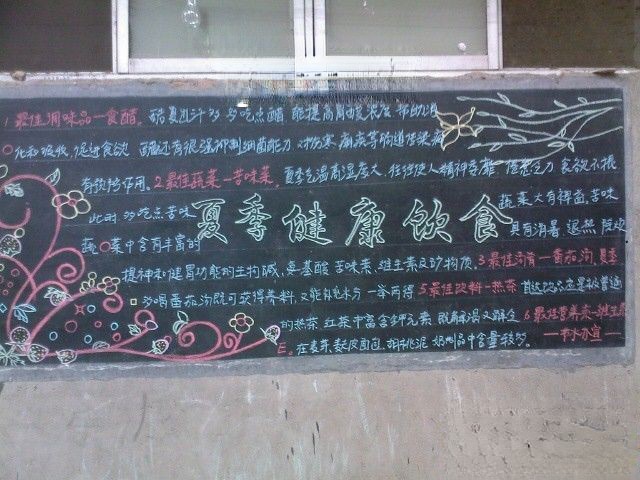 1最佳调味品—食醋。酷夏出汗多 多吃点醋 能提高胃酸浓度 帮助消
化和吸收,促进食欲 醋还有很强抑制细菌能力 对伤寒 痢疾等肠道传染病
有预防作用。2最佳蔬菜—苦味菜。夏季气温高湿度大 往往使人精神萎靡 倦怠乏力 食欲不振
此时 多吃点苦味 蔬菜大有裨益。苦味
夏季健康饮食
蔬菜中含有丰富的 具有消暑 退热 除烦
提神和健胃功能的生物碱、氨基酸 苦味素、维生素及矿物质。3最佳汤肴—番茄汤 夏季
多喝番茄汤既可获得养料,又能补充水分 一举两得 5最佳饮料—热茶
的热茶 红茶中富含钾元素 既解渴又解乏 6最佳营养素—维生素
E。在麦芽、麸皮面包、胡桃泥 奶制品中含量较多。